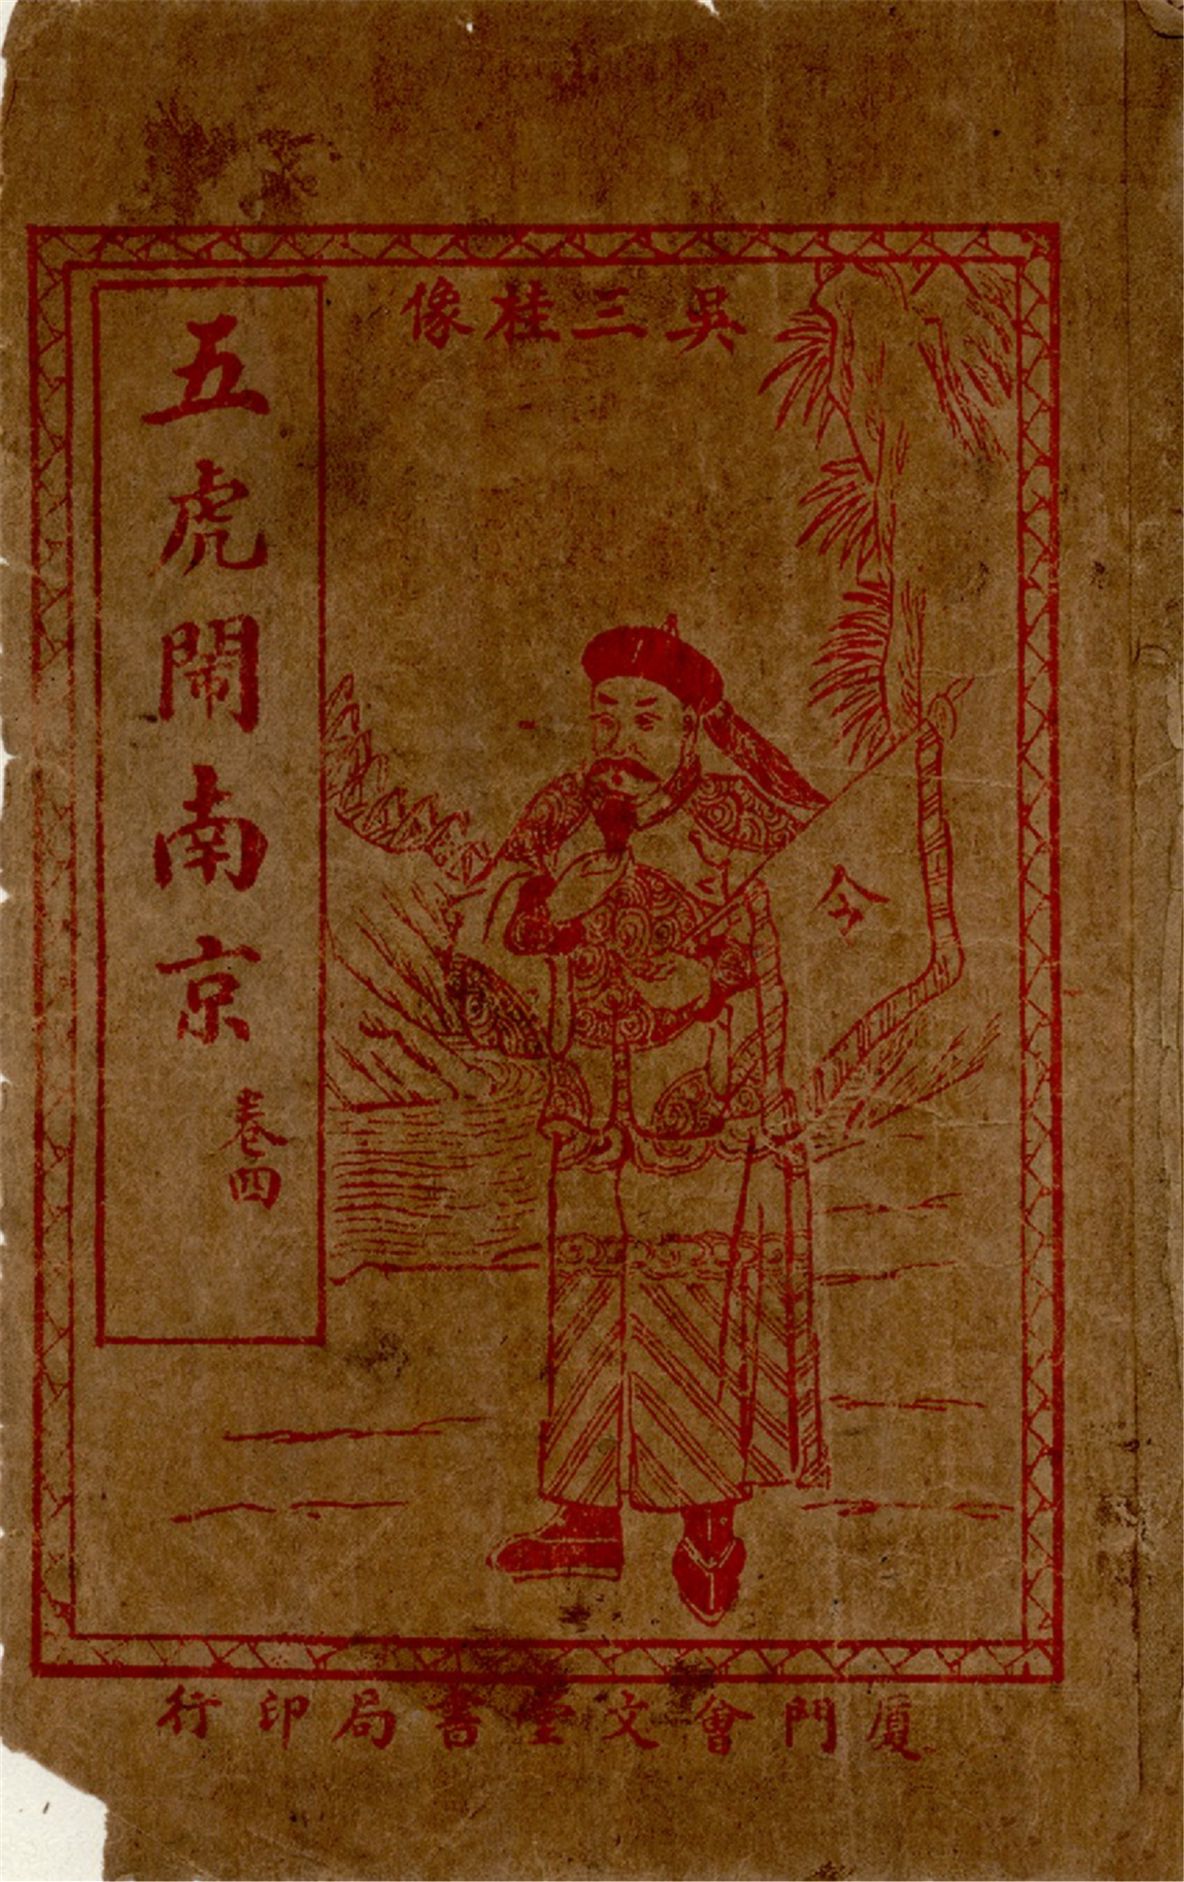 吳三桂像
五虎鬧南京
卷四
令
厦門會文堂書局印行